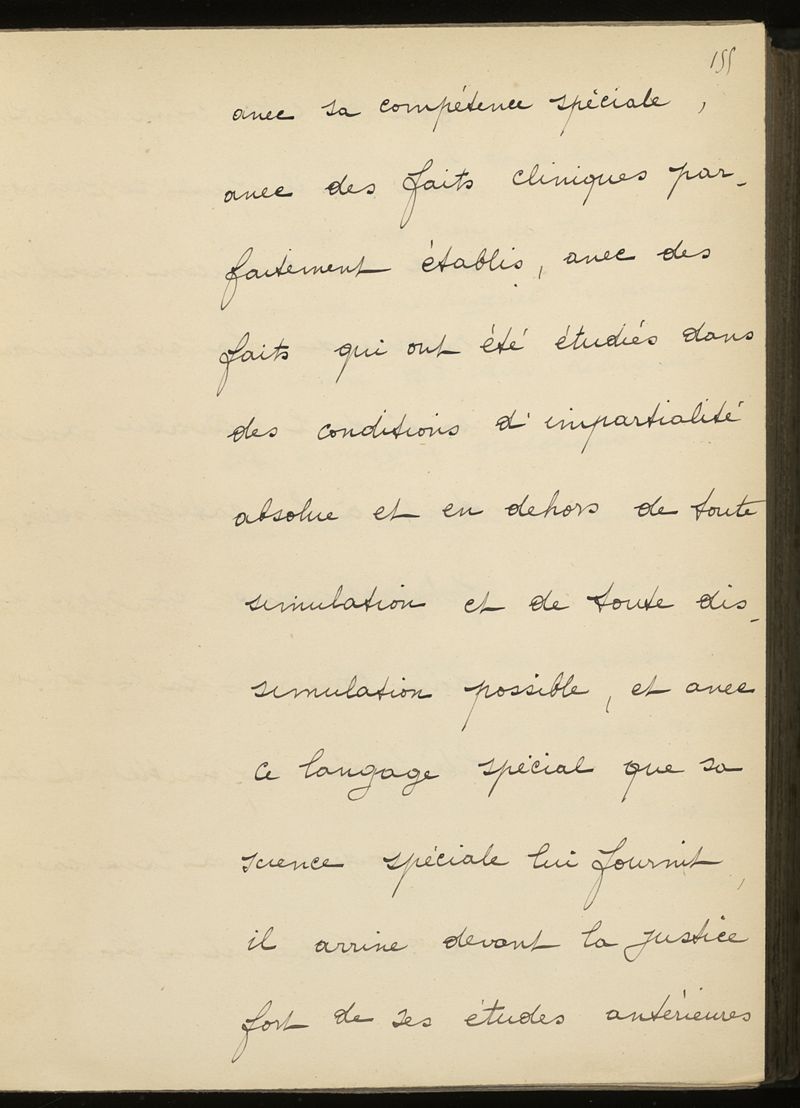 155
avec sa compétence spéciale,
avec des faits cliniques par-
faitement établis, avec des
faits qui ont été étudiés dans
des conditions d'impartialité
absolue et en dehors de toute
simulation et de toute dis-
simulation possible, et avec
ce langage spécial que sa
science spéciale lui fournit,
il arrive devant la justice
fort de ses études antérieures